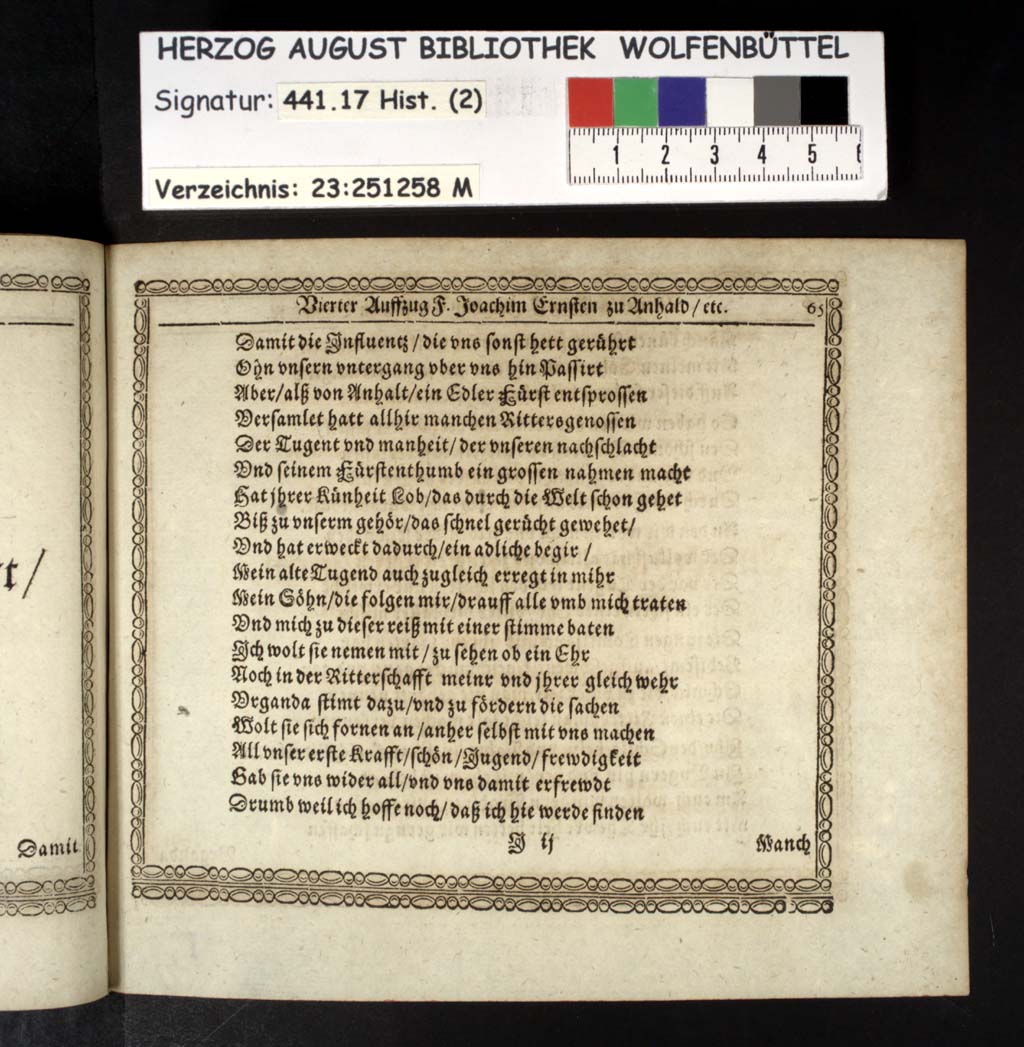 HERZOG AUGUST BIBLIOTHEK WOLFENBÜTTEL
Signatur: 441.17 Hist. (2)
1 2 3 4 5 6
Verzeichnis: 23:251258 M
Vierter Auffzug F. Joachim Ernsten zu Anhald / etc. 65
Damit die Influentz / die vns sonst hett gerührt
Ohn vnsern vntergang vber vns hin Passirt
Aber/alß von Anhalt/ein Edler Fürst entsprossen
Versamlet hatt allhir manchen Rittersgenossen
Der Tugent vnd manheit/ der vnseren nachschlacht
Vnd seinem Fürstenthumb ein grossen nahmen macht
Hat jhrer Künheit Lob/das durch die Welt schon gehet
Biß zu vnserm gehör/das schnel gerücht gewehet/
Vnd hat erweckt dadurch/ein adliche begir /
Mein alte Tugend auch zugleich erregt in mihr
Mein Söhn/die folgen mir/drauff alle vmb mich traten
Vnd mich zu dieser reiß mit einer stimme baten
Ich wolt sie nemen mit / zu sehen ob ein Ehr
Noch in der Ritterschafft meinr vnd jhrer gleich wehr
Vrganda stimt dazu/vnd zu fördern die sachen
Wolt sie sich fornen an/anher selbst mit vns machen
All vnser erste Krafft/schön/Jugend/frewdigkeit
Gab sie vns wider all/vnd vns damit erfrewdt
Drumb weil ich hoffe noch/ daß ich hie werde finden
J ij Manch
t/
Damit